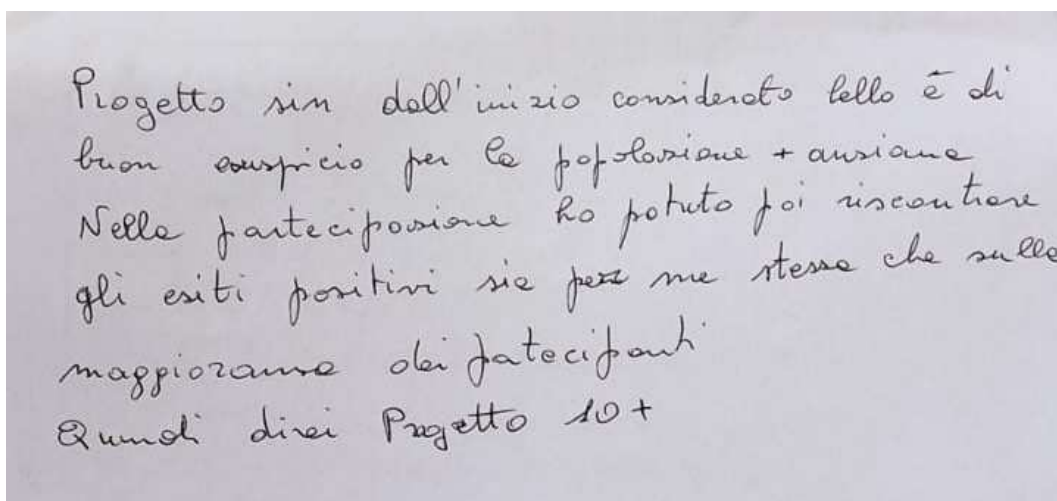 Progetto sin dall'inizio considerato bello è di
buon auspicio per la popolazione + anziana
Nella partecipazione ho potuto poi riscontrare
gli esiti positivi sia per me stessa che sulla
maggioranza dei patecipanti
Quindi direi Progetto 10+